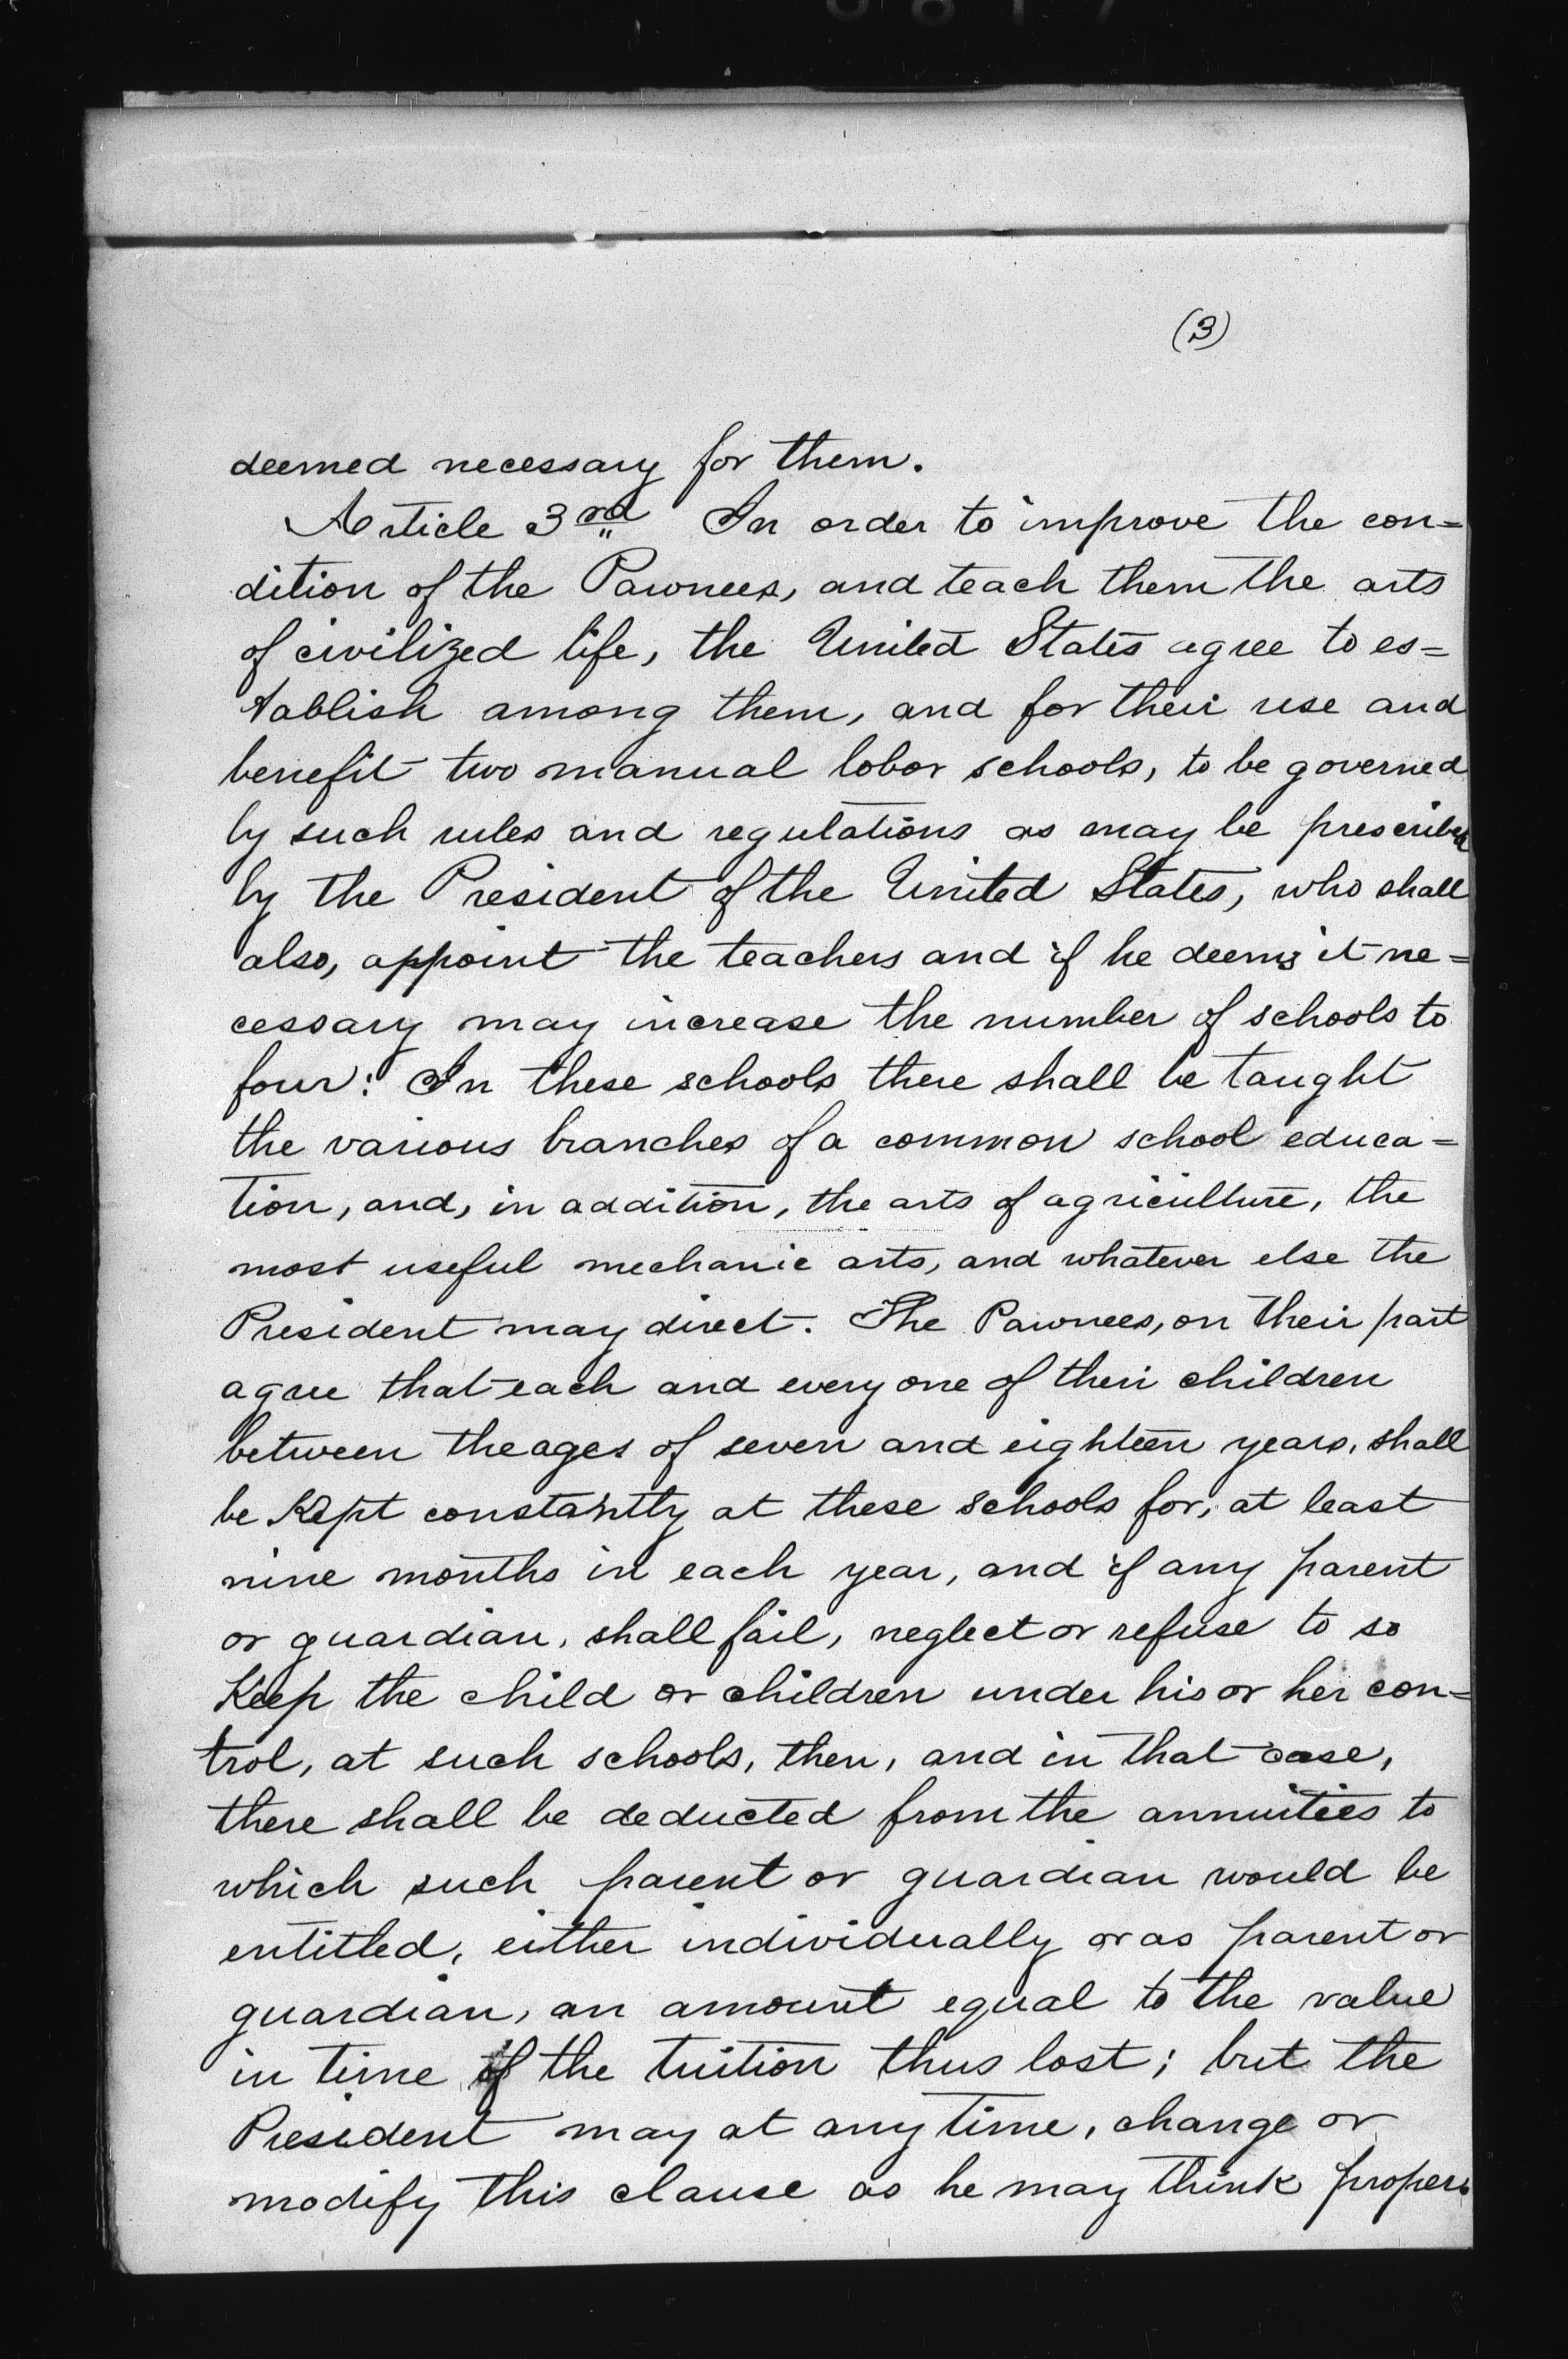 (3)
deemed necessary for them.
Article 3rd In order to improve the con=
dition of the Pawnees, and teach them the arts
of civilized life, the United States agree to es=
tablish among them, and for their use and
benefit two manual labor schools, to be governed
by such rules and regulations as may be prescribed
by the President of the United States, who shall
also, appoint the teachers and if he deems it ne=
cessary may increase the number of schools to
four: In these schools there shall be taught
the various branches of a common school educa=
tion, and, in addition, the arts of agriculture, the
most useful mechanic arts, and whatever else the
President may direct. The Pawnees, on their part
agree that each and every one of their children
between the ages of seven and eighteen years, shall
be Kept constantly at these schools for, at least
nine months in each year, and if any parent
or guardian, shall fail, neglect or refuse to so
Keep the child or children under his or her con=
trol, at such schools, then, and in that case,
there shall be deducted from the annuities to
which such parent or guardian would be
entitled, either individually or as parent or
guardian, an amount equal to the value
in time of the tuition thus lost; but the
President may at any time, change or
modify this clause as he may think proper.